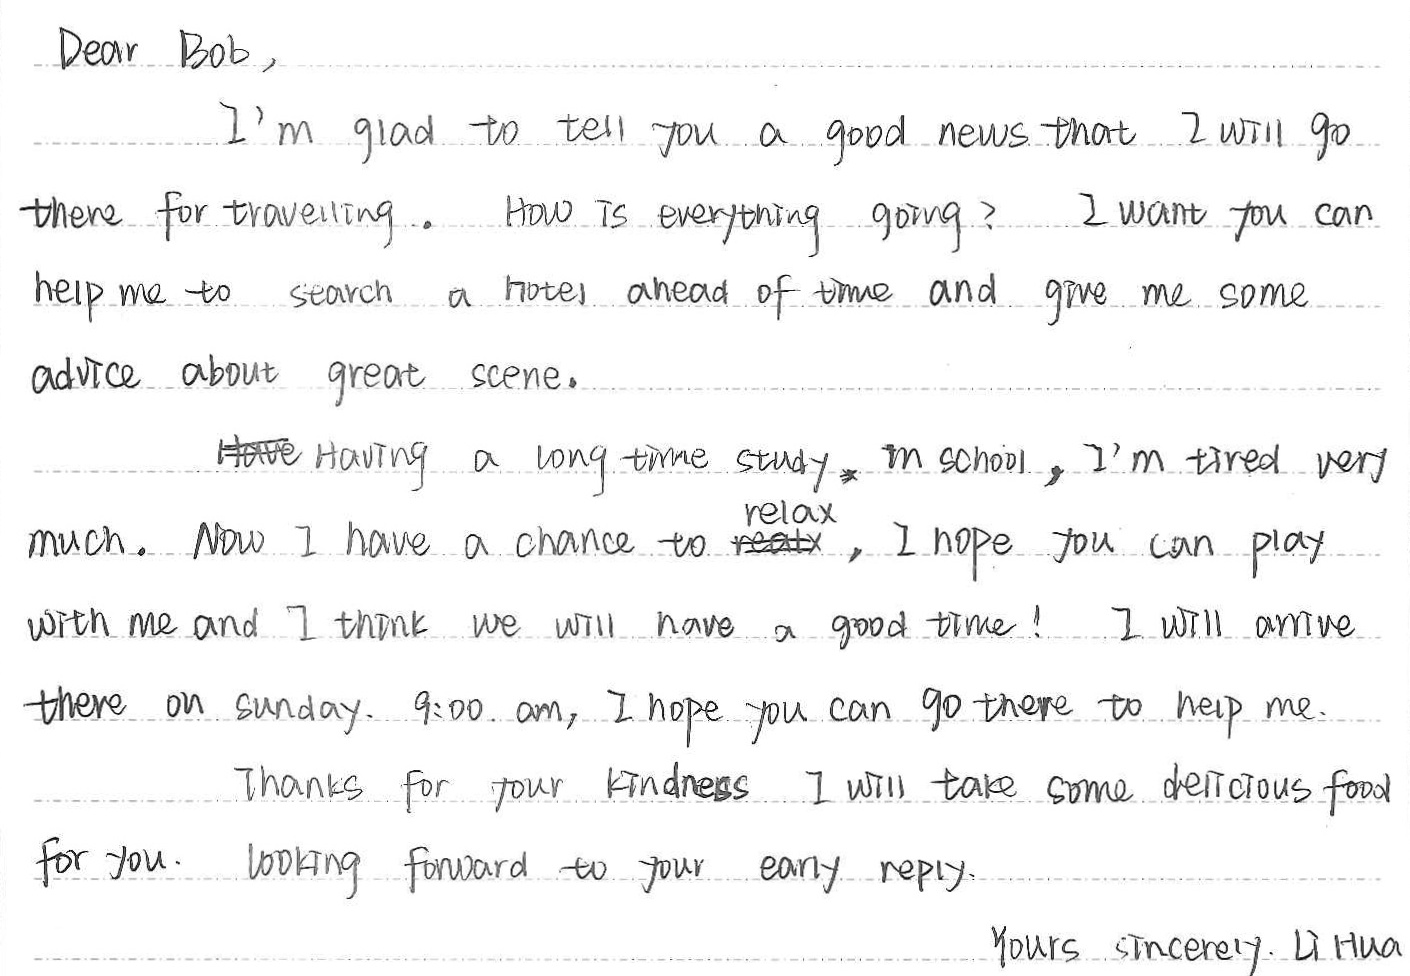 Dear Bob,
I'm glad to tell you a good news that I will go
there for travelling. How is everything going? I want you can
help me to search a hotel ahead of time and give me some
advice about great scene.
Having a long time study in school, I'm tired very
much. Now I have a chance to relax, I hope you can play
with me and I think we will have a good time! I will arrive
there on sunday. 9:00 am, I hope you can go there to help me.
Thanks for your kindness I will take some delicious food
for you. looking forward to your early reply.
Yours sincerely. Li Hua